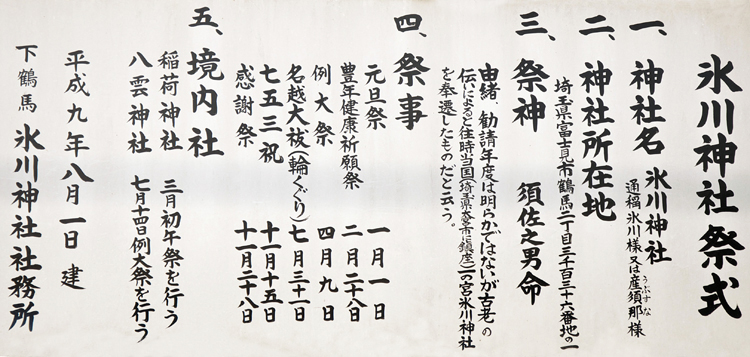 氷川神社祭式
一、神社名 氷川神社
通稱氷川様又は産須那様
うぶすな
二、神社所在地
埼玉県富士見市鶴馬二丁目三千百三十六番地の一
三、祭神 須佐之男命
由緒、勧請年度は明らかではないが古老の
伝いによると往時当国(埼玉県大宮市に鎮座)一の宮氷川神社
を奉遷したものだと云う。
四、祭事
元旦祭 一月一日
豊年健康祈願祭 二月二十八日
例大祭 四月九日
名越大祓(輪くぐり) 七月三十一日
七五三祝 十一月十五日
感謝祭 十一月二十八日
五、境内社
稲荷神社 三月初午祭を行う
八雲神社 七月十四日例大祭を行う
平成九年八月一日 建
下鶴馬 氷川神社社務所